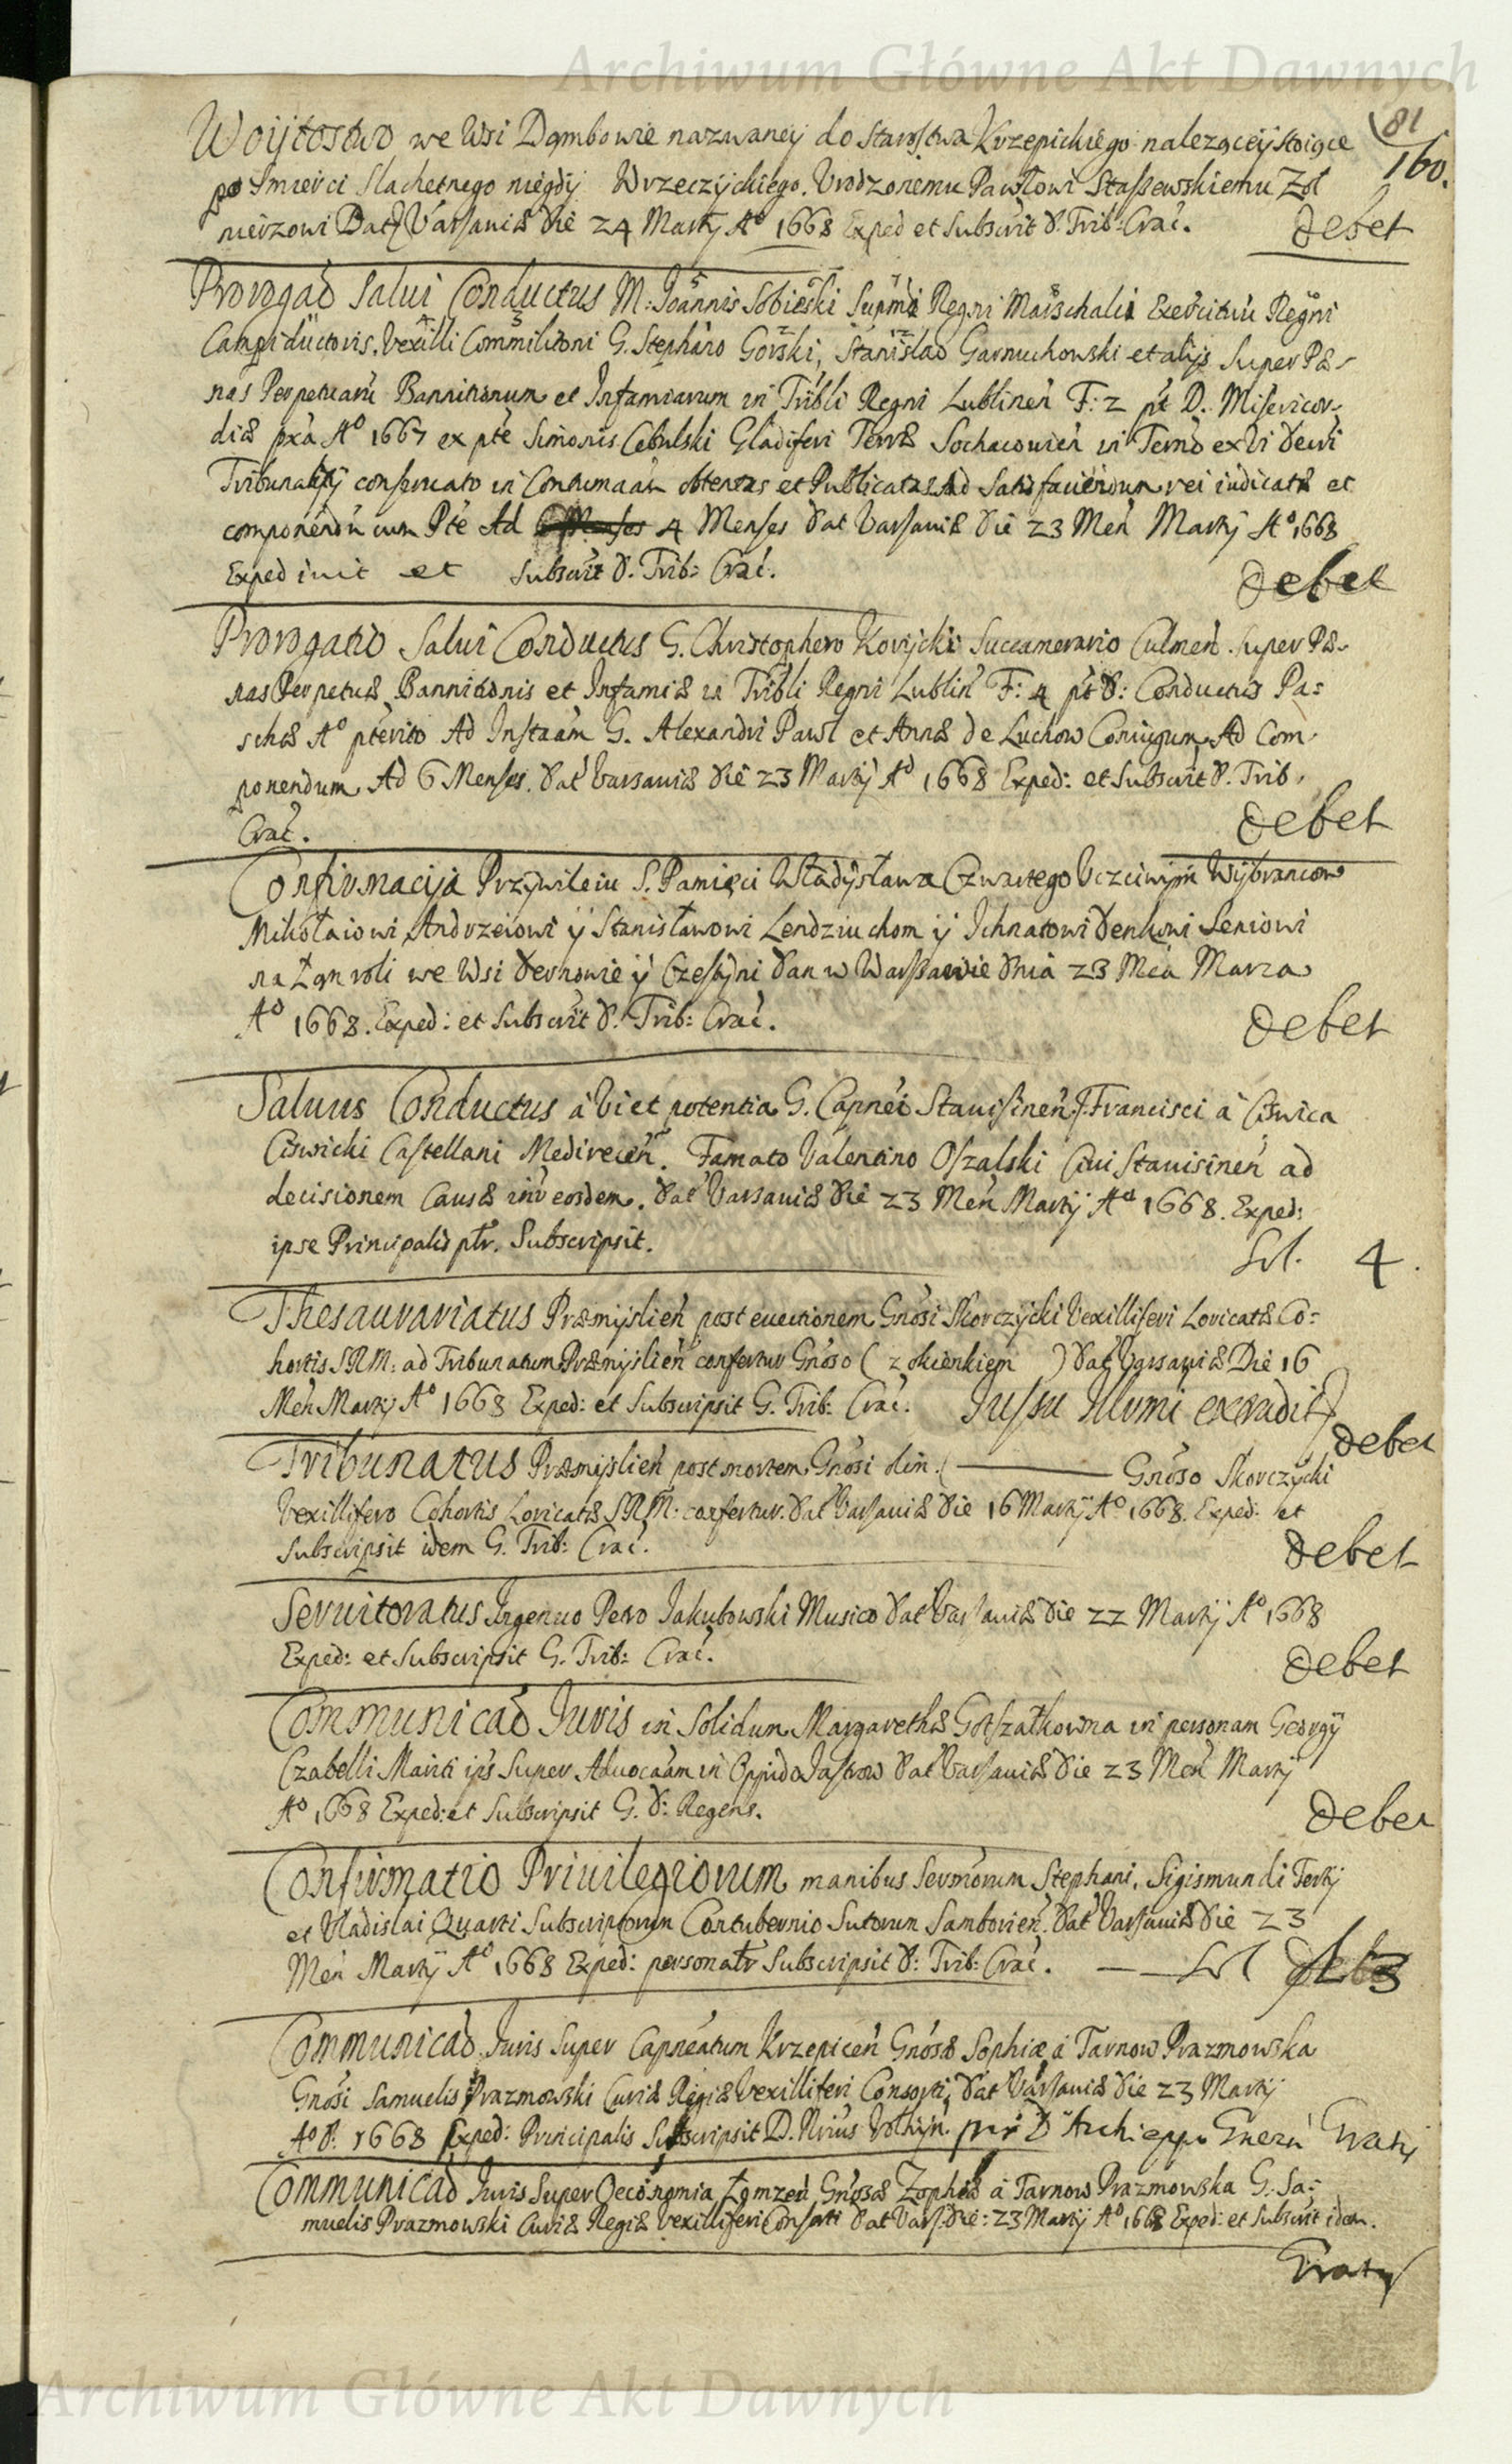 Archiwum Główne Akt Dawnych
81
160.
Woijtostwo we Wsi Dąmbowie nazwaney do Starostwa Krzepickiego nalezącey stoiące
po Smierci Slachetnego niegdy Wrzeczyckiego. Vrodzonemu Pawłowi Staszewskiemu Zoł
nierzowi Dat Varsaviæ Die 24 Martij Aº 1668 Exped et Subscrit D. Trib: Crac. debet
Prorogaõ Salui Conductus M. Joannis Sobieski Supmi Regni Marschalci Exercituũ Regni
Campiductoris, Vexilli Commilitoni G. Stephano Gorski, Stanislao Garnuchowski et alijs Super Pæ-
nas Perpetuarũ Bannitionum et Infamiarum in Tribli Regni Lublineñ F: 2 pt D. Misericor-
diæ pxa Aº 1667 ex pte Simonis Cebulski Gladiferi Terræ Sochacouieñ in Termõ ex Vi
Tribunalitij conseruato in Contumaam obtentas et Publicatas Ad Satisfaciendum rei iudicatæ et
componendũ cum Pte Ad 4 Menses Dat Varsauiæ Die 23 Meñ Martij Aº 1668
Expediuit et Subscrit D. Trib: Crac. debet
Prorogatio Salui Conductus G. Christophero Koryjcki Succamerario Culmeñ. Super Pæ-
nas Perpetuæ Bannitionis et Infamiæ in Tribli Regni Lubliñ F: 4 pt D: Conductus Pa:
schæ Aº pterito Ad Instaam G. Alexandri Pawl et Annæ de Luchow Coniugum Ad Com
ponendum Ad 6 Menses. Dat Varsauiæ Die 23 Martij Aº 1668 Exped: et Subscrit D. Trib.
Crac. debet
Confirmacija Przywileiu S. Pamięci Władysława Czwartego Vczciwym Wybrancom
Mikołaiowi Andrzeiowi ÿ Stanisławowi Lendziuchom ÿ Jchnatowi Seniowi
na Łan roli we Wsi Dernowie ÿ Dan w Warszawie Dnia 23 Mca Marca
Aº 1668. Exped: et Subscrit D. Trib: Crac. debet
Saluus Conductus a Vi et potentia G. Capnei Stauisineñ Francisci a Ciswica
Ciswicki Castellani Medireceñ. Famato Valentino Oszalski Ciui Stauisineñ ad
decisionem Causæ eosdem. Dat Varsauiæ Die 23 Meñ Martij Aº 1668. Exped:
ipse Principalis ptr. Subscripsit. Sol. 4.
Thesaurariatus Præmyslieñ post euectionem Gnosi Skorczycki Vexilliferi Loricatæ Co:
hortis SRM: ad Tribunatum Præmyslieñ confertur Gnoso ( z okienkiem ) Dat Varsauiæ Die 16
Meñ Martij Aº 1668 Exped: et Subscripsit G. Trib: Crac. Jussu Illmi extradit debet
Tribunatus Præmyslieñ post mortem Gnosi olim ( Gnoso Skorczycki
Vexillifero Cohortis Loricatæ SRM: confertur. Dat Varsauiæ Die 16 Martij Aº 1668. Exped: et
Subscripsit idem G. Trib: Crac. debet
Seruitoratus Ingenuo Petro Jakubowski Musico Dat Varsauiæ Die 22 Martij Aº 1668
Exped: et Subscripsit G. Trib: Crac. debet
Communicaõ Juris in Solidum Margarethæ Gotszałkowna in personam Georgij
Czabelli Mariti ips Super Aduocaam in Oppido Jastrow Dat Varsauiæ Die 23 Meñ Martij
Aº 1668 Exped: et Subscripsit G. D: Regens. debet
Confirmatio Priuilegiorum manibus Sermorum Stephani, Sigismundi Tertij
et Vladislai Quarti Subscriptorum Contubernio Sutorum Samborieñ. Dat Varsauiæ Die 23
Meñ Martij Aº 1668 Exped: personatr Subscripsit D: Trib: Crac. Sol
Communicaõ Juris Super Capneatum Krzepiceñ Gnosæ Sophiæ a Tarnow Prazmowska
Gnosi Samuelis Prazmowski Curiæ Regiæ Vexilliferi Consorti, Dat Varsauiæ Die 23 Martij
Aº D: 1668 Exped: Principalis Subscripsit D. Nrius Volhyn. D Archieppi Gnezñ Gratis
Communicaõ Juris Super Oeconomia Łomzeñ Gnosæ Zophiæ a Tarnow Prazmowska G. Sa:
muelis Prazmowski Curiæ Regiæ Vexilliferi Consorti Dat Vars. Die: 23 Martij Aº 1668 Exped: et Subscrit idem.
Gratis
Archiwum Główne Akt Dawnych